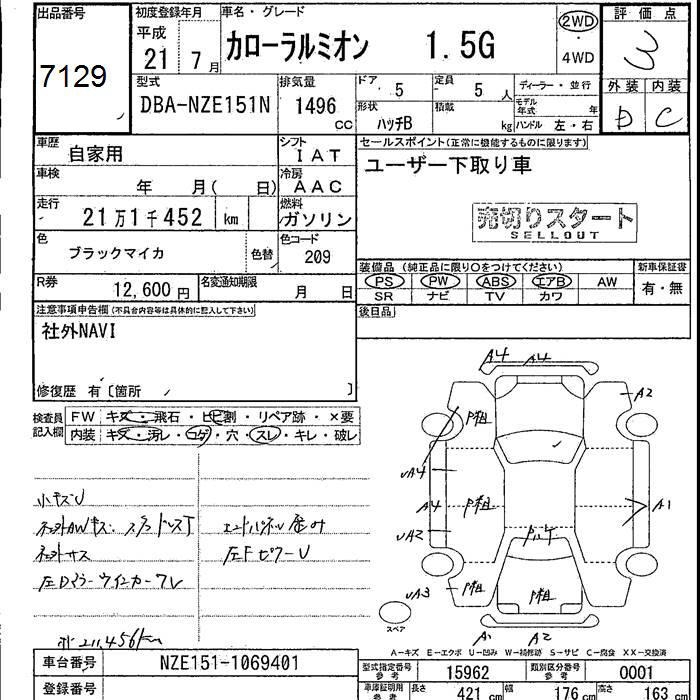 出品番号
7129
初度登録年月
平成
21 7月
車名・グレード
カローラルミオン 1.5G
2WD
4WD
評価点
3
外装 内装
D C
型式
DBA-NZE151N
排気量
1496 cc
ドア 5
定員 5 人
ディーラー・並行
形状
ハッチB
積載
kg
モデル年式 年
ハンドル 左・右
車歴
自家用
シフト
IAT
車検
年 月( 日)
冷房
AAC
走行
21万1千452 km
燃料
ガソリン
色
ブラックマイカ
色替
色コード
209
R券
12,600円
名変通知期限
月 日
セールスポイント(正常に機能するものに限ります)
ユーザー下取り車
売切りスタート
SELLOUT
装備品(純正品に限り○をつけてください)
新車保証書
PS PW ABS エアB AW
有・無
SR ナビ TV カワ
後日品
注意事項申告欄(不具合内容等は具体的に記入して下さい)
社外NAVI
修復歴 有〔箇所 〕
検査員
記入欄
FW キズ・飛石・ヒビ割・リペア跡・×要
内装 キズ・汚レ・コゲ・穴・スレ・キレ・破レ
小キズU
社外AWキズ
社外サス
211,456km
A4 A4
A2
P粗
UA4
A4
P粗
A1
UA2
UA3
P粗
P粗
A1 A2
スペア
A-キズ E-エクボ U-凹み W-補修跡 S-サビ C-腐食 XX-交換済
車台番号
NZE151-1069401
登録番号
型式指定番号
参考
15962
類別区分番号
参考
0001
車庫証明用
参考
長さ 421 cm
幅 176 cm
高さ 163 cm